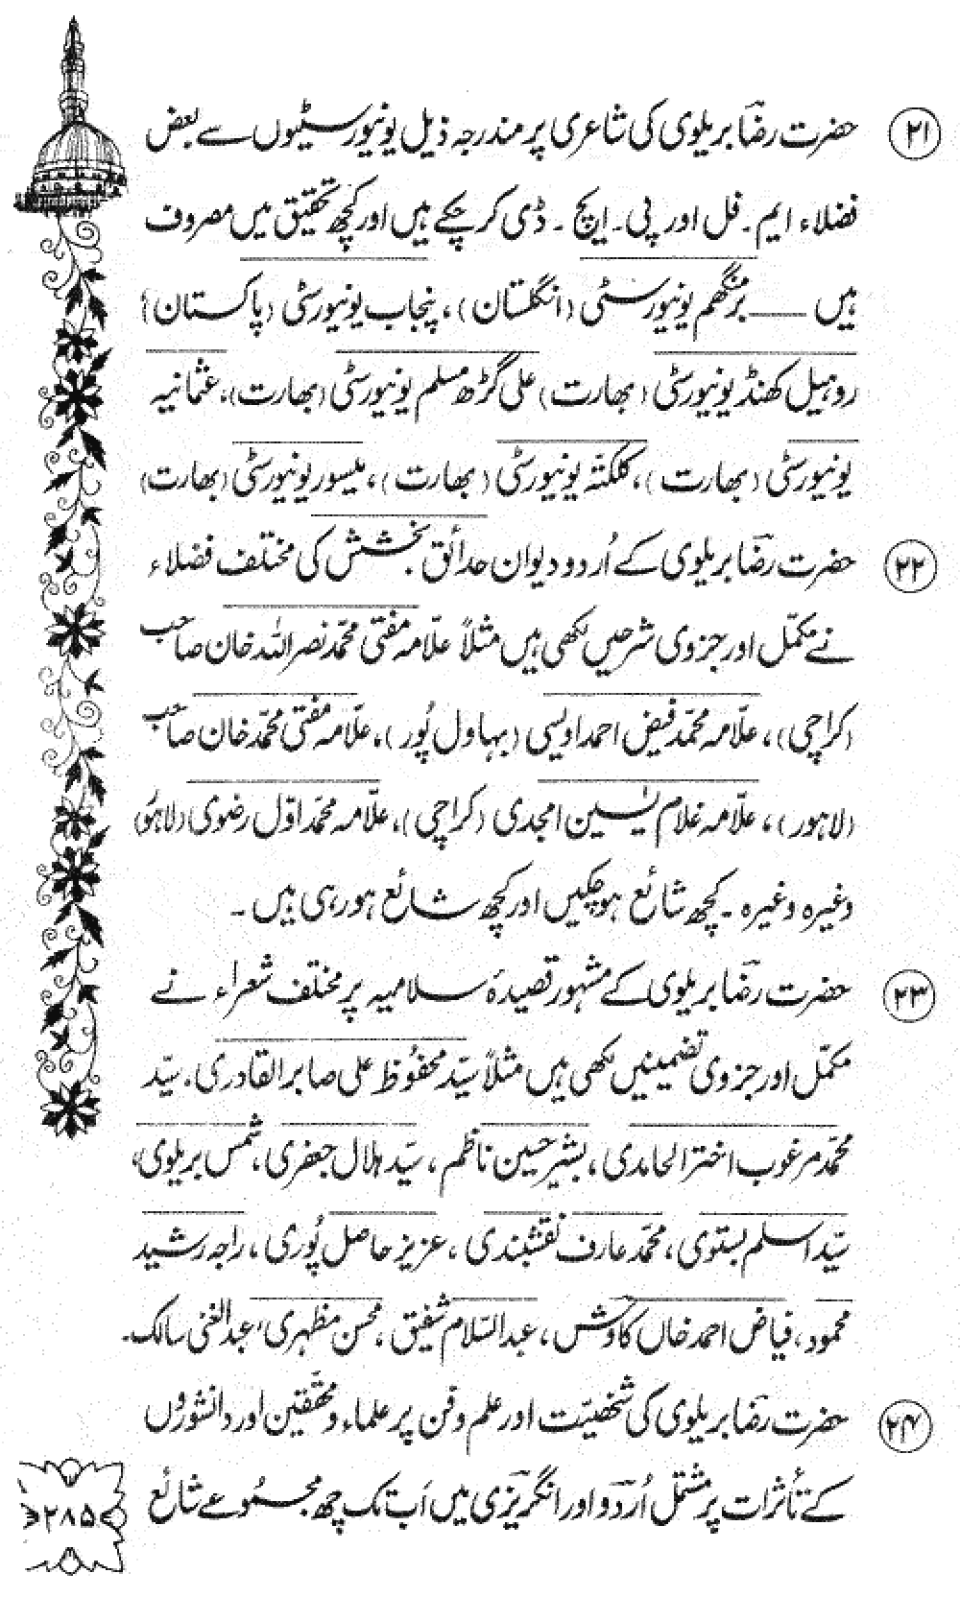 (۲۱) حضرت رضاؔ بریلوی کی شاعری پر مندرجہ ذیل یونیورسٹیوں سے بعض
فضلاء ایم۔ فل اور پی۔ ایچ۔ ڈی کر چکے ہیں اور کچھ تحقیق میں مصروف
ہیں ـــــ برمنگھم یونیورسٹی (انگلستان)، پنجاب یونیورسٹی (پاکستان)؛
روہیل کھنڈ یونیورسٹی (بھارت) علی گڑھ مسلم یونیورسٹی (بھارت)، عثمانیہ
یونیورسٹی (بھارت)، کلکتہ یونیورسٹی (بھارت)، میسور یونیورسٹی (بھارت)
(۲۲) حضرت رضاؔ بریلوی کے اُردو دیوان حدائق بخشش کی مختلف فضلاء
نے مکمّل اور جزوی شرحیں لکھی ہیں مثلاً علّامہ مفتی محمّد نصراللہ خان صاحب
(کراچی)، علّامہ محمّد فیض احمد اویسی (بہاول پُور)، علّامہ مفتی محمّد خان صاحب
(لاہور)، علّامہ غلام یٰسین امجدی (کراچی)، علّامہ محمّد اوّل رضوی (لاہور)
وغیرہ وغیرہ۔ کچھ شائع ہو چکیں اور کچھ شائع ہو رہی ہیں۔
(۲۳) حضرت رضاؔ بریلوی کے مشہور قصیدۂ سلامیہ پر مختلف شعراء نے
مکمّل اور جزوی تضمینیں لکھی ہیں مثلاً سیّد محفُوظ علی صابر القادری، سیّد
محمّد مرغوب اختر الحامدی، بشیر حسین ناظم، سیّد ہلال جعفری، شمس بریلوی،
سیّد اسلم بستوی، محمّد عارف نقشبندی، عزیز حاصل پُوری، راجہ رشید
محمود، فیاض احمد خاں کاوش، عبدالسّلام شفیق، محسن مظہری، عبدالغنی سالک۔
(۲۴) حضرت رضاؔ بریلوی کی شخصیّت اور علم و فن پر علماء و محقّقین اور دانشوروں
کے تأثرات پر مشتمل اُردو اور انگریزی میں اَب تک چھ مجموُعے شائع
۲۸۵